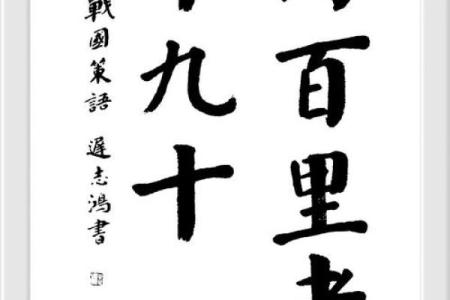 百里者
九十
戰國策語 遲志鴻書